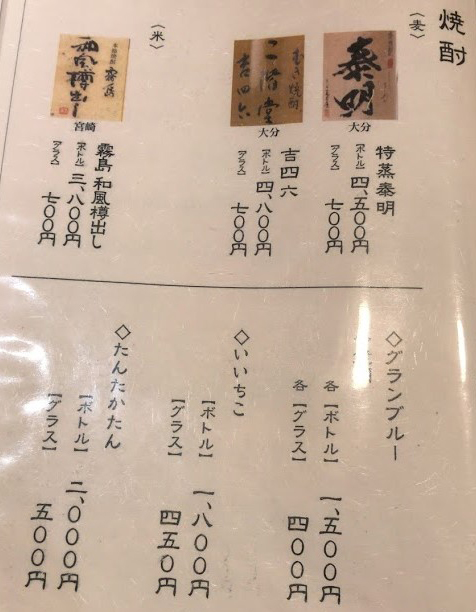 焼酎
〈麦〉
泰明
大分
特蒸泰明
【ボトル】四、五〇〇円
【グラス】七〇〇円
むぎ焼酎
二階堂
吉四六
大分
吉四六
【ボトル】四、八〇〇円
【グラス】七〇〇円
〈米〉
本格焼酎 霧島
和風樽出し
宮崎
霧島 和風樽出し
【ボトル】三、八〇〇円
【グラス】七〇〇円
◇グランブルー
各【ボトル】 一、五〇〇円
各【グラス】 四〇〇円
◇いいちこ
【ボトル】 一、八〇〇円
【グラス】 四五〇円
◇たんたかたん
【ボトル】 二、〇〇〇円
【グラス】 五〇〇円